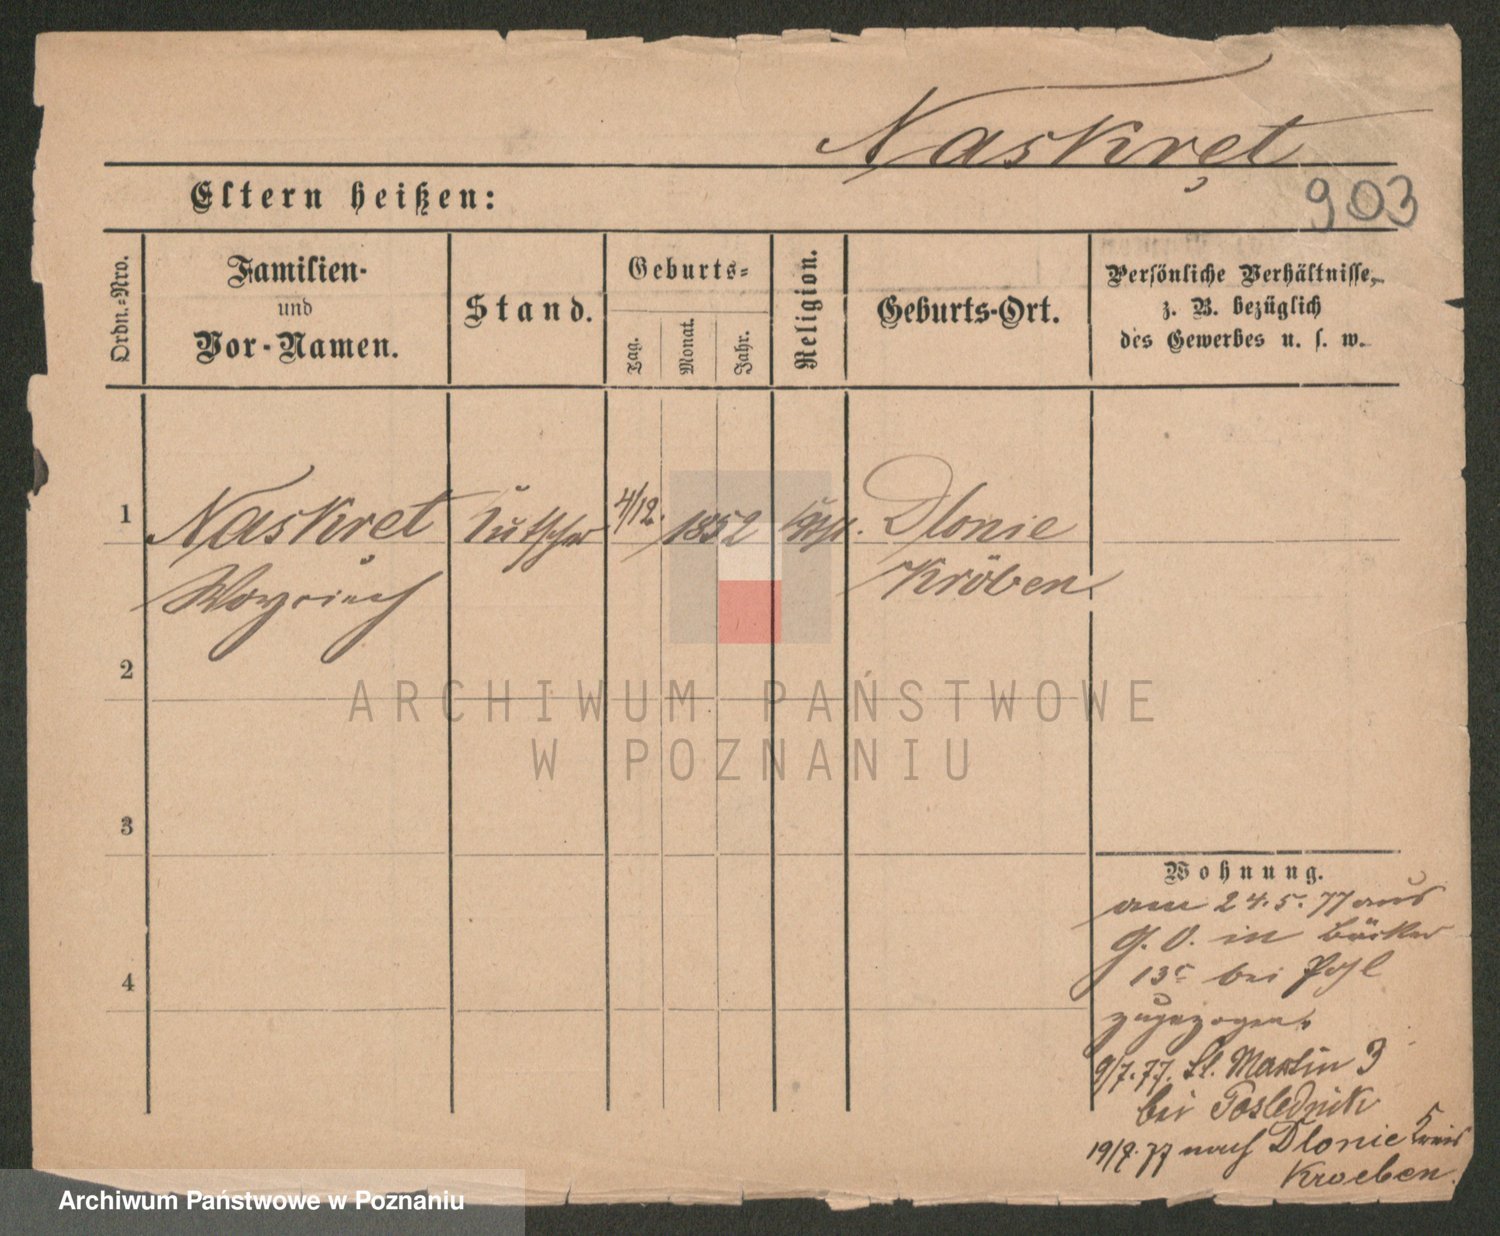 Naskręt
903
Eltern heißen:
Ordn.-Nro.
Familien-
und
Vor-Namen.
Stand.
Geburts-
Tag.
Monat.
Jahr.
Religion.
Geburts-Ort.
Persönliche Verhältnisse,
z. B. bezüglich
des Gewerbes u. s. w.
1
Naskręt Kutscher 4/12. 1852 kath. Dlonie
Woyciech Kröben
2
3
4
ARCHIWUM PAŃSTWOWE
W POZNANIU
Wohnung.
am 24.5.77 aus
G. O. in Bäcker
13c bei Pohl
zugezogen.
9/7.77. St. Martin 3
bei Poslednik
19/9.77 nach Dlonie Kreis
Kroeben.
Archiwum Państwowe w Poznaniu